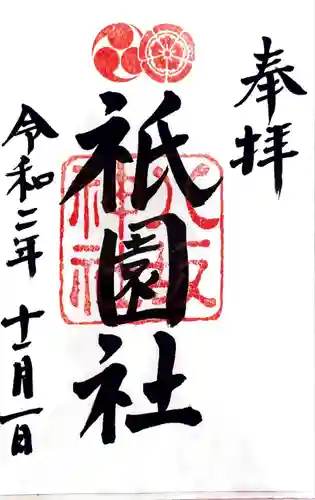 奉拝
祇園社
八坂神社
令和二年 十一月一日